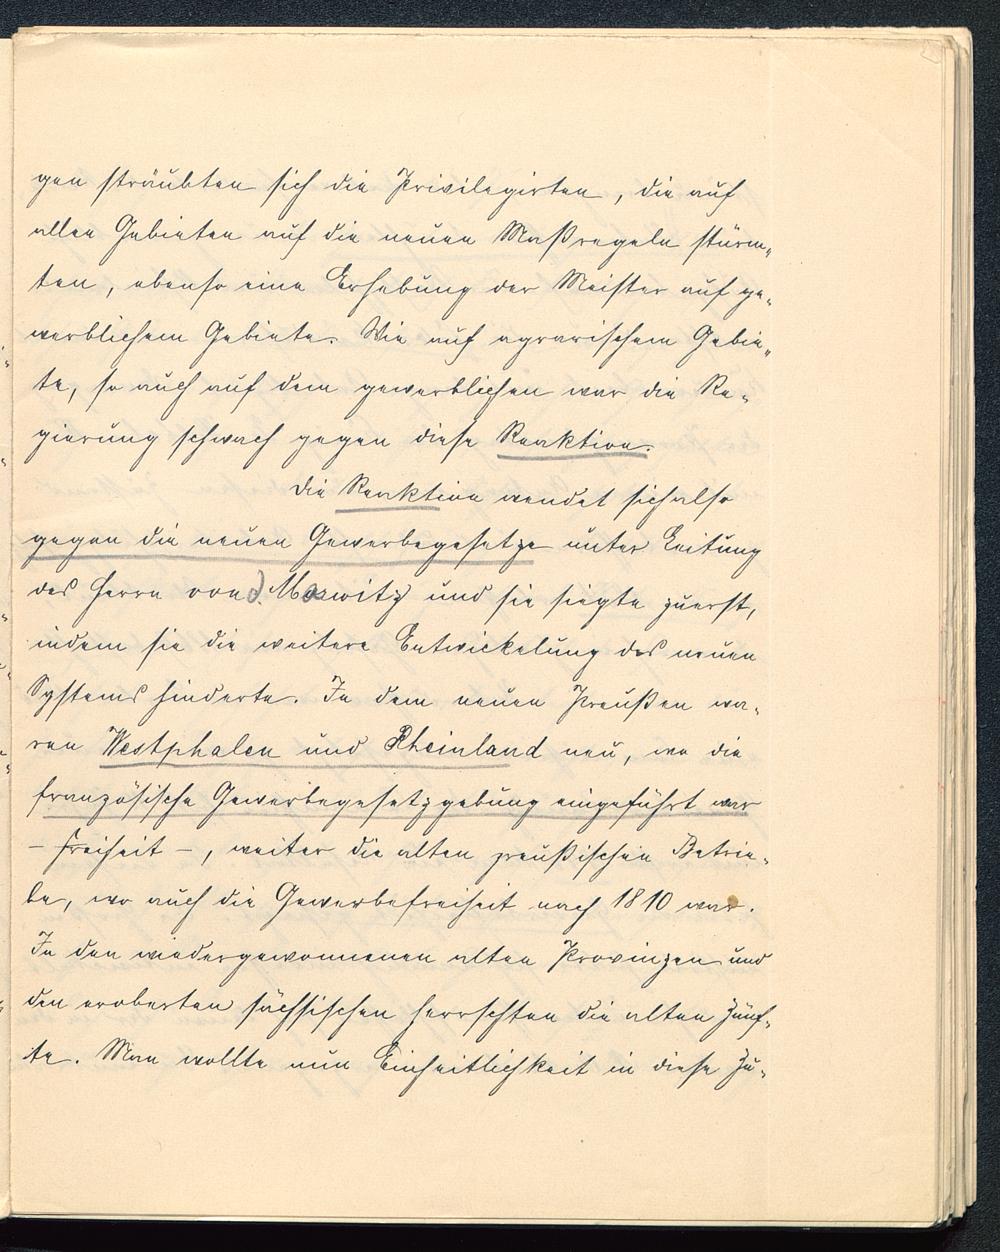 gen sträubten sich die Privilegirten, die auf
allen Gebieten auf die neuen Maßregeln stürm-
ten, ebenso eine Erhebung der Meister auf ge-
werblichem Gebiete. Wie auf agrarischem Gebie-
te, so auch auf dem gewerblichen war die Re-
gierung schwach gegen diese Reaktion.
Die Reaktion wendet sich also
gegen die neuen Gewerbegesetze unter Leitung
des Herrn von d. Marwitz und sie siegte zuerst,
indem sie die weitere Entwickelung des neuen
Systems hinderte. In dem neuen Preußen wa-
ren Westphalen und Rheinland neu, wo die
französische Gewerbegesetzgebung eingeführt war
– Freiheit –, weiter die alten preußischen Betrie-
be, wo auch die Gewerbefreiheit nach 1810 war.
In den wiedergewonnenen alten Provinzen und
den eroberten sächsischen herrschten die alten Zünf-
te. Man wollte nun Einheitlichkeit in diese Zu-